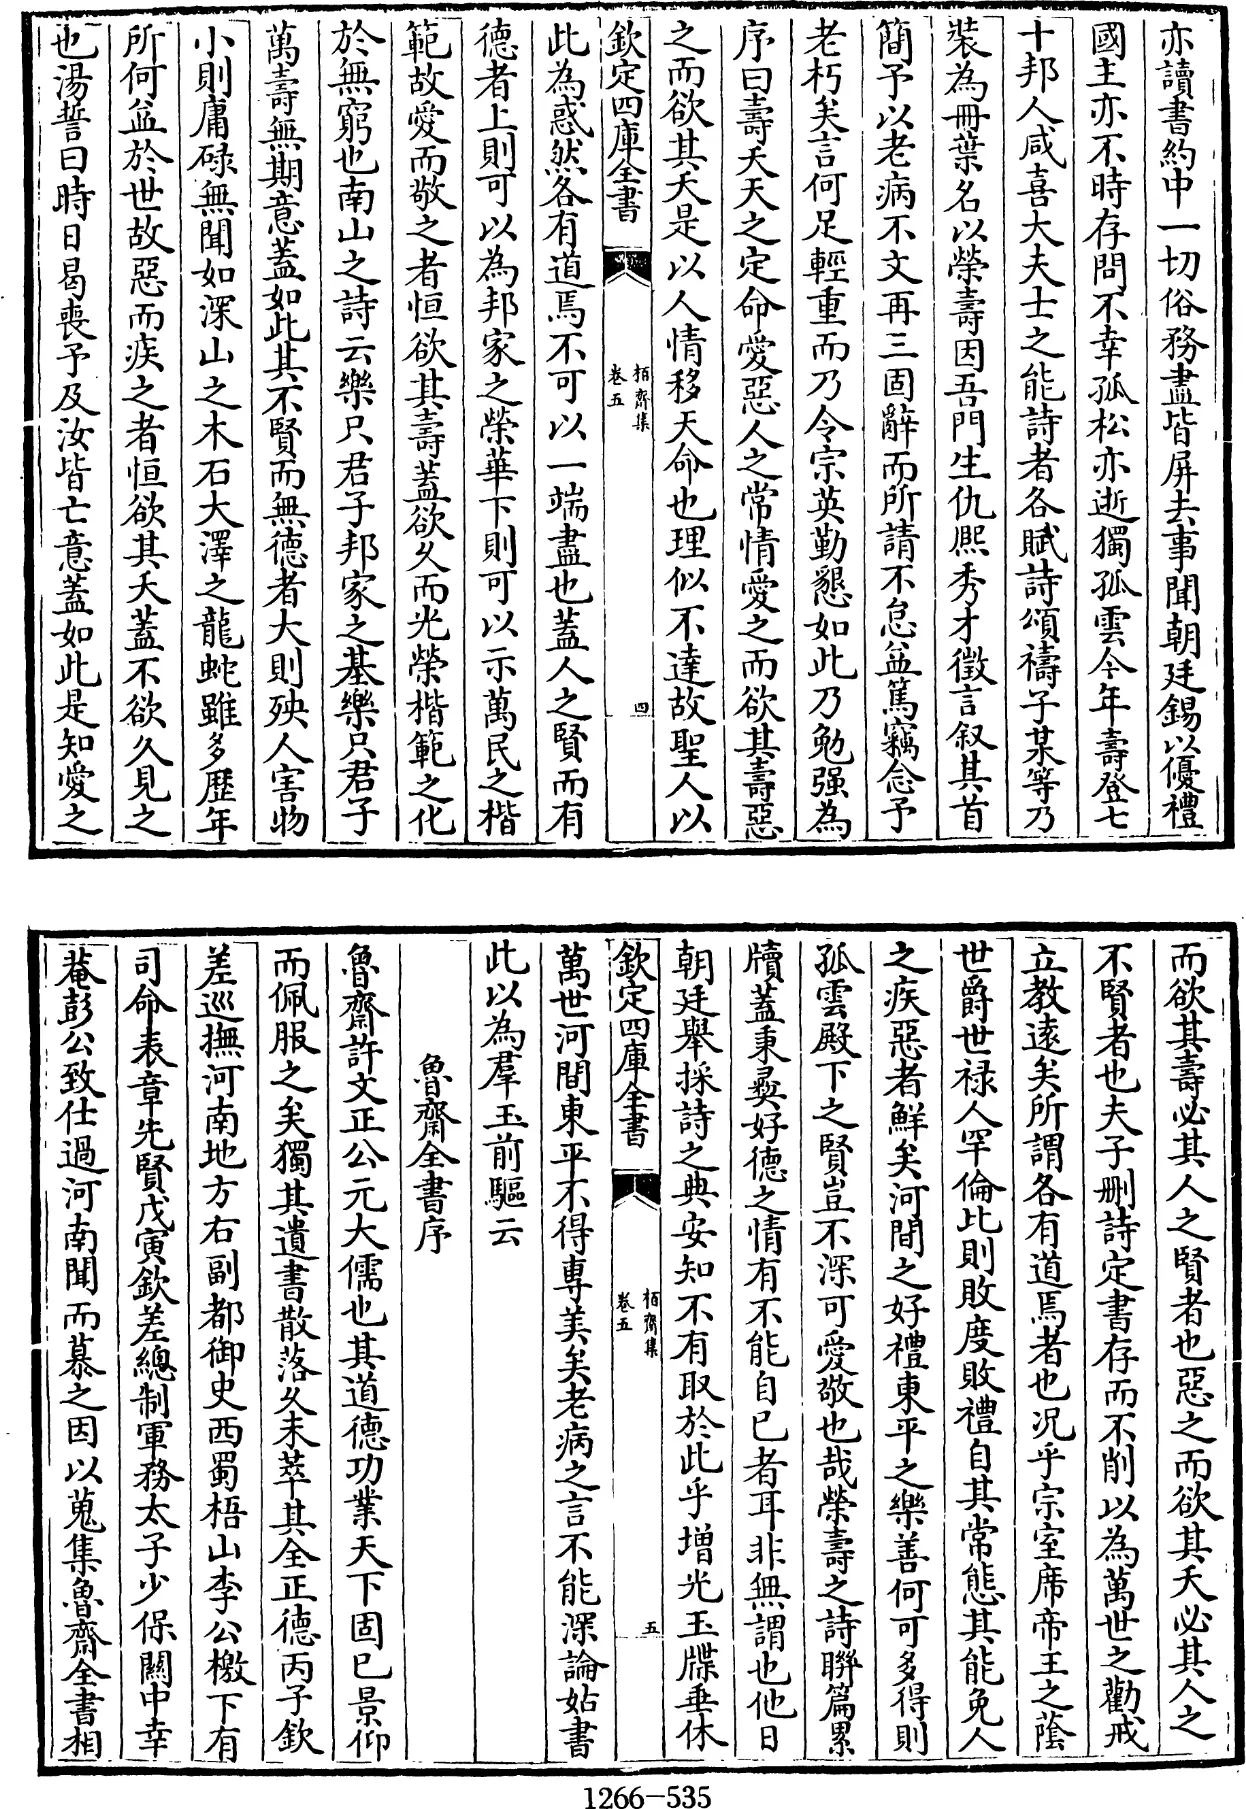 亦讀書約中一切俗務盡皆屏去事聞朝廷錫以優禮
國主亦不時存問不幸孤松亦逝獨孤雲今年壽登七
十邦人咸喜大夫士之能詩者各賦詩頌禱子某等乃
裝為冊葉名以榮壽因吾門生仇熙秀才徵言叙其首
簡予以老病不文再三固辭而所請不怠益篤竊念予
老朽矣言何足輕重而乃令宗英勤懇如此乃勉强為
序曰壽夭天之定命愛惡人之常情愛之而欲其壽惡
之而欲其夭是以人情移天命也理似不達故聖人以
欽定四庫全書
栢齋集
卷五
四
此為惑然各有道焉不可以一端盡也蓋人之賢而有
德者上則可以為邦家之榮華下則可以示萬民之楷
範故愛而敬之者恒欲其壽蓋欲久而光榮楷範之化
於無窮也南山之詩云樂只君子邦家之基樂只君子
萬壽無期意蓋如此其不賢而無德者大則殃人害物
小則庸碌無聞如深山之木石大澤之龍蛇雖多歷年
所何益於世故惡而疾之者恒欲其夭蓋不欲久見之
也湯誓曰時日曷喪予及汝皆亡意蓋如此是知愛之
而欲其壽必其人之賢者也惡之而欲其夭必其人之
不賢者也夫子刪詩定書存而不削以為萬世之勸戒
立教遠矣所謂各有道焉者也况乎宗室席帝王之蔭
世爵世禄人罕倫比則敗度敗禮自其常態其能免人
之疾惡者鮮矣河間之好禮東平之樂善何可多得則
孤雲殿下之賢豈不深可愛敬也哉榮壽之詩聯篇累
牘蓋秉彛好德之情有不能自已者耳非無謂也他日
朝廷舉採詩之典安知不有取於此乎增光玉牒垂休
欽定四庫全書
栢齋集
卷五
五
萬世河間東平不得專美矣老病之言不能深論姑書
此以為羣玉前驅云
魯齋全書序
魯齋許文正公元大儒也其道德功業天下固已景仰
而佩服之矣獨其遺書散落久未萃其全正德丙子欽
差巡撫河南地方右副都御史西蜀梧山李公檄下有
司命表章先賢戊寅欽差總制軍務太子少保關中幸
菴彭公致仕過河南聞而慕之因以蒐集魯齋全書相
1266-535